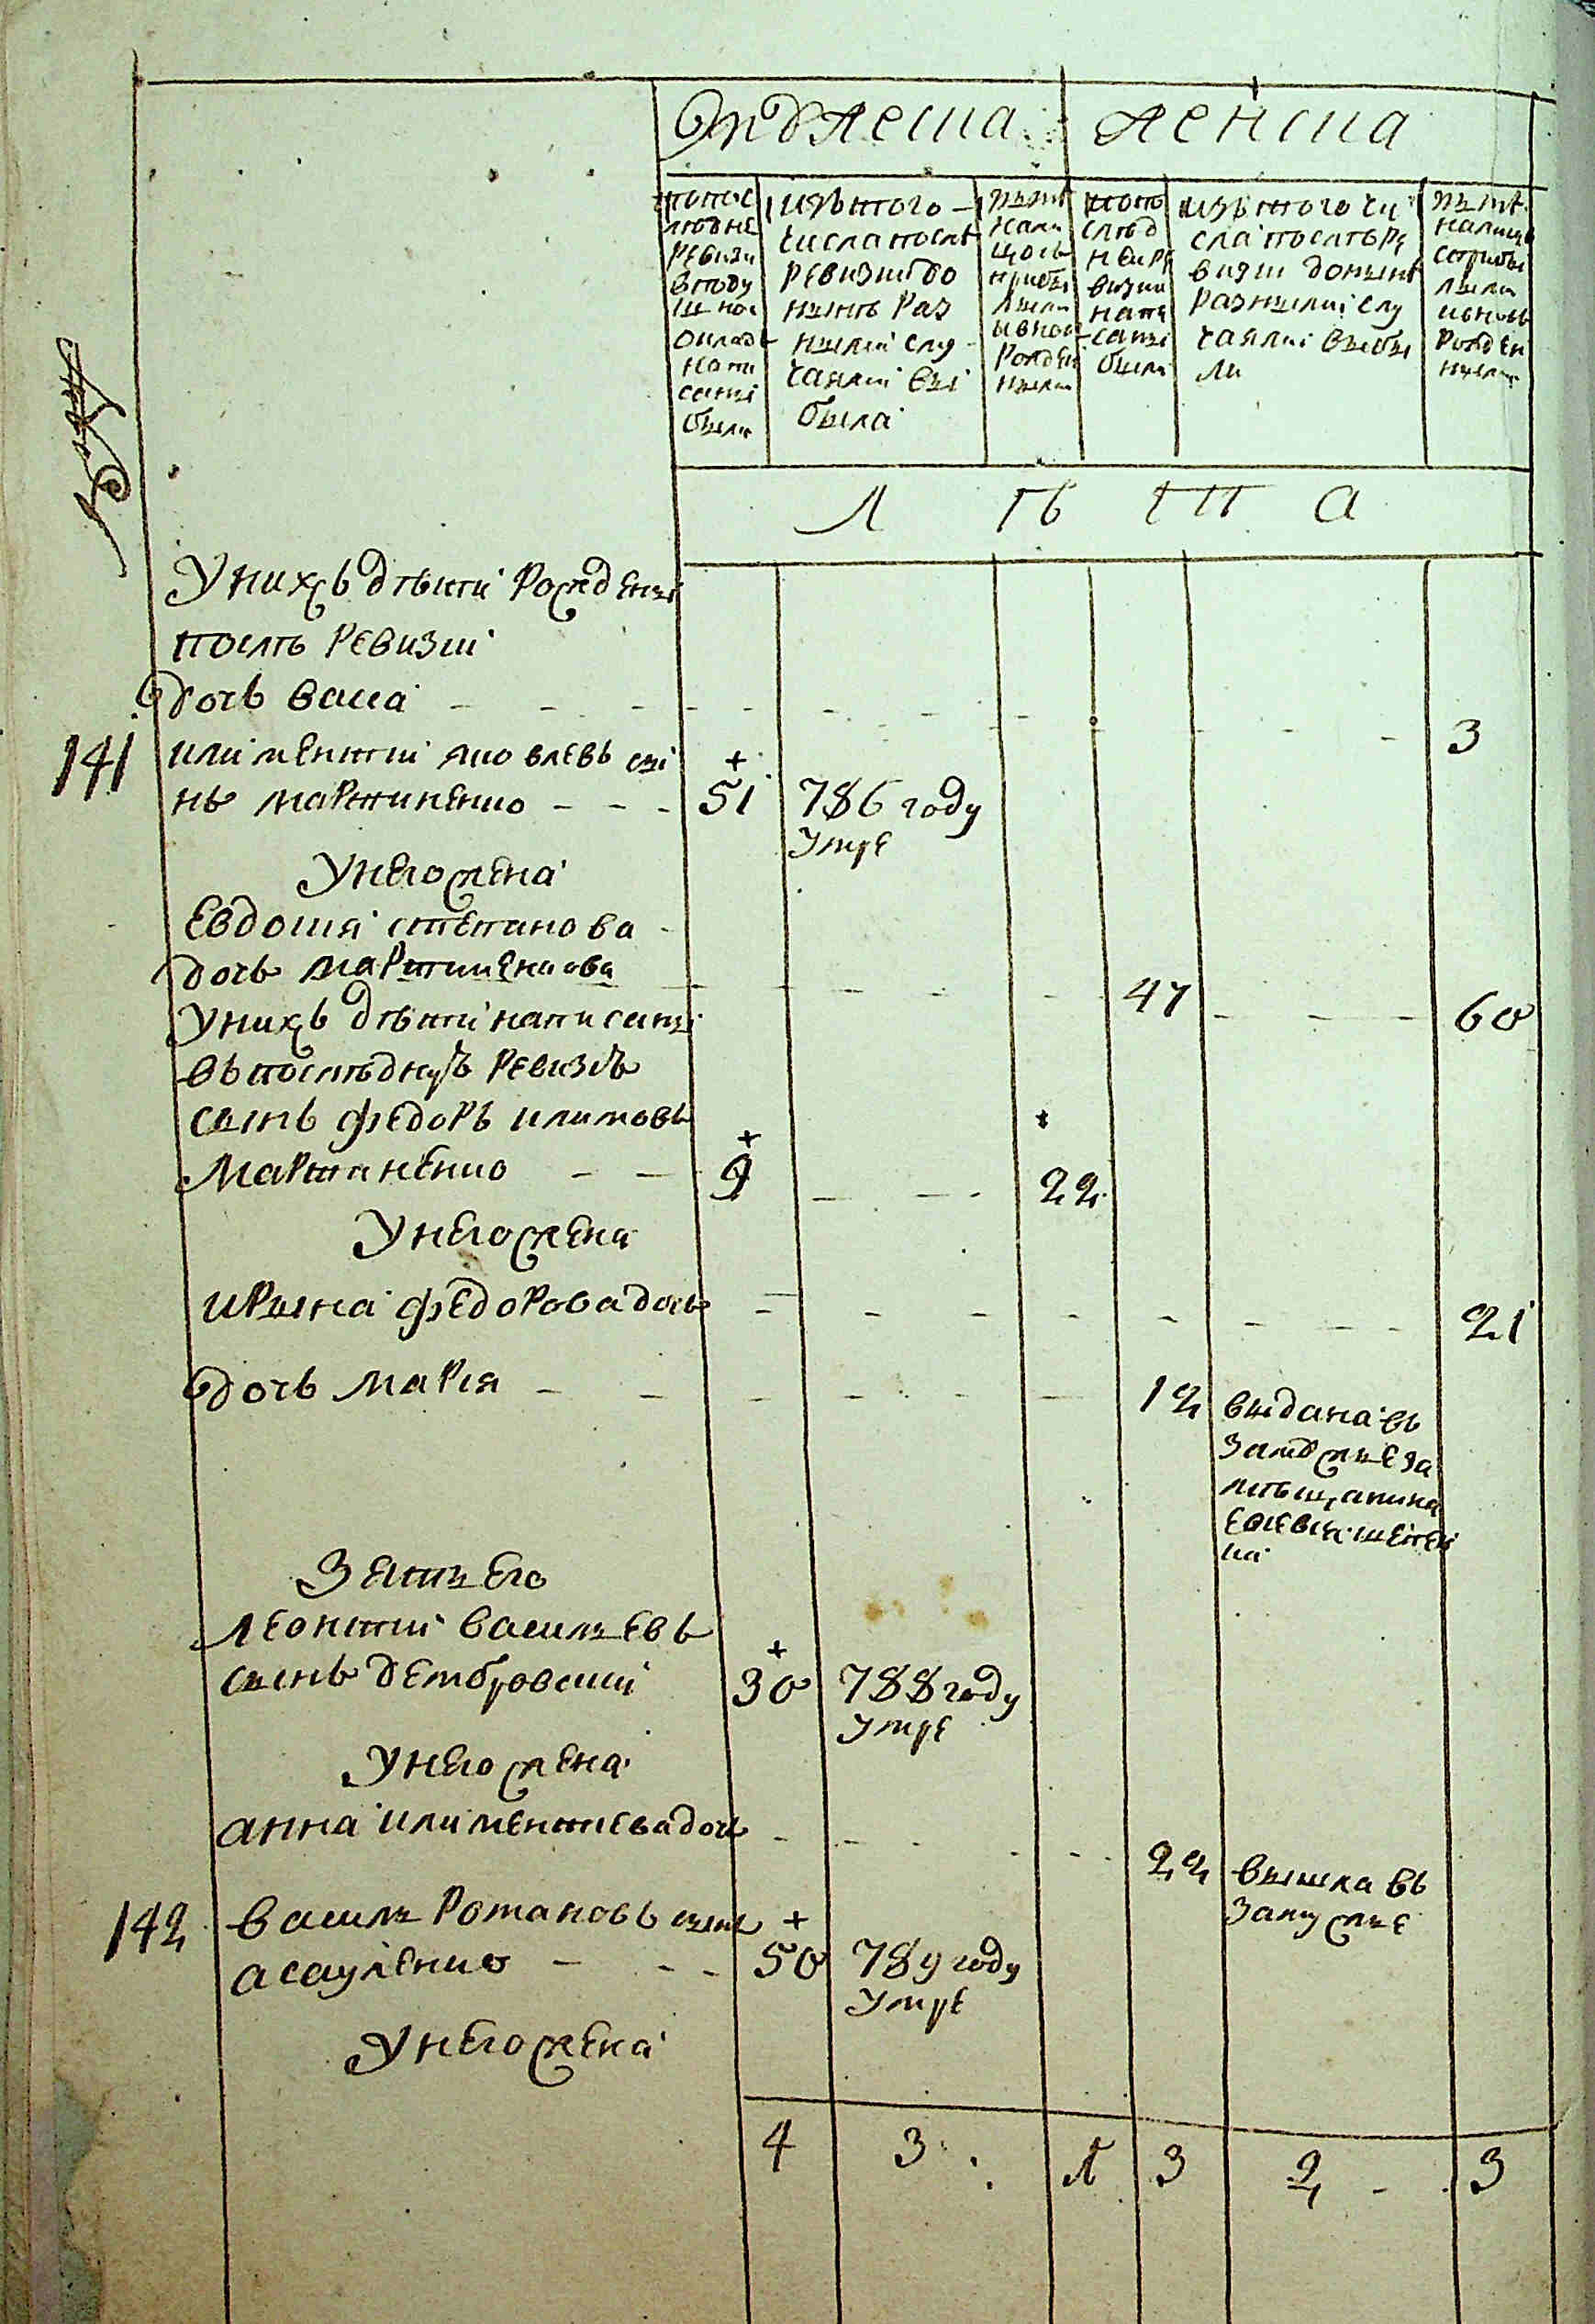 мужеска женска
по пос
ледне
ревизи
в поду
шно
окладъ
напи
саны
были
изъ того
числа послѣ
ревизии до
нынѣ раз
ными слу
чаями вы
была
нынѣ
нали
цо съ
прибы
лыми
и внов
рожден
ными
попо
слѣд
ней ре
визии
напи
саны
были
изъ того чи
сла послѣ ре
визии донынѣ
разными слу
чаями выбы
ли
нынѣ
налицо
с прибы
лыми
и вновь
рожден
ными
Л ѣ т а
У нихъ дѣти рожденны
послѣ ревизии
дочь васса - - - 3
141 климентий яковлевъ сы
нъ мартиненко - - - 51 786 году
умре
У него жена
Евдокия степанова
дочь мартиненкова - - - 47 - - - 60
У нихъ дѣти написаны
въ последнуъ ревизъ
сынъ федоръ климовъ
Мартиненко - - 9 - - - 22
У него жена
Ирына федорова дочь - - - 21
дочь Мария - - - 12 выдана въ
замужые за
мѣщанина

Зять Его
Леонтий василъевъ
сынъ дембровский 30 788 году
умре
У него жена
анна климентиева дочь - - - 22 вышла въ
замужые
142 василъ романовъ сынъ
асауленко - - - 50 789 году
умре
У него жена
4 3 1 3 2 3